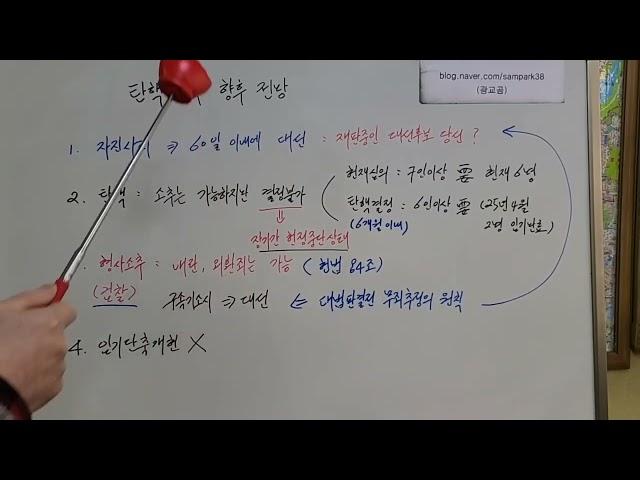 blog.naver.com/sampark38
(광교곰)
탄핵 향후 전망
1. 자진사 ⇒ 60일 이내에 대선 : 재판중인 대선후보 당선?
2. 탄핵 : 소추는 가능하지만 결정불가
헌재심의 : 9인이상 要 현재 6명
탄핵결정 : 6인이상 要 (25년 4월
(6개월 이내) 2명 임기만료)
⇓
장기간 헌정중단상태
형사소추 : 내란, 외환죄는 가능 (헌법 84조)
(검찰) 구속기소시 ⇒ 대선 ⇐ 대법판결전 무죄추정의 원칙
4. 임기단축개헌 X